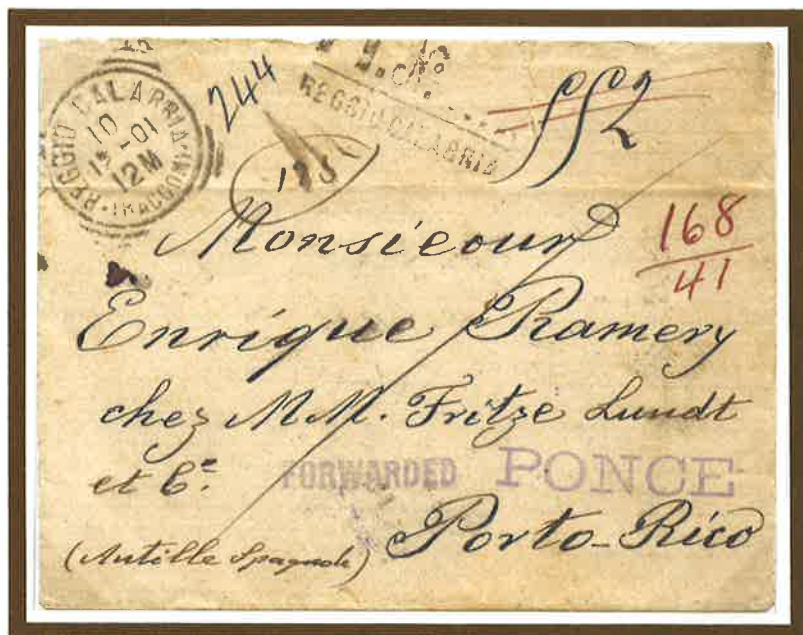 REGGIO CALABRIA
10
-01
12M
244
REGGIO CALABRIA
552
168
41
Monsieour
Enrique Ramery
chez MM. Fritze Lundt
et Cᵉ.
FORWARDED PONCE
Porto-Rico
(Antille Spagnole)